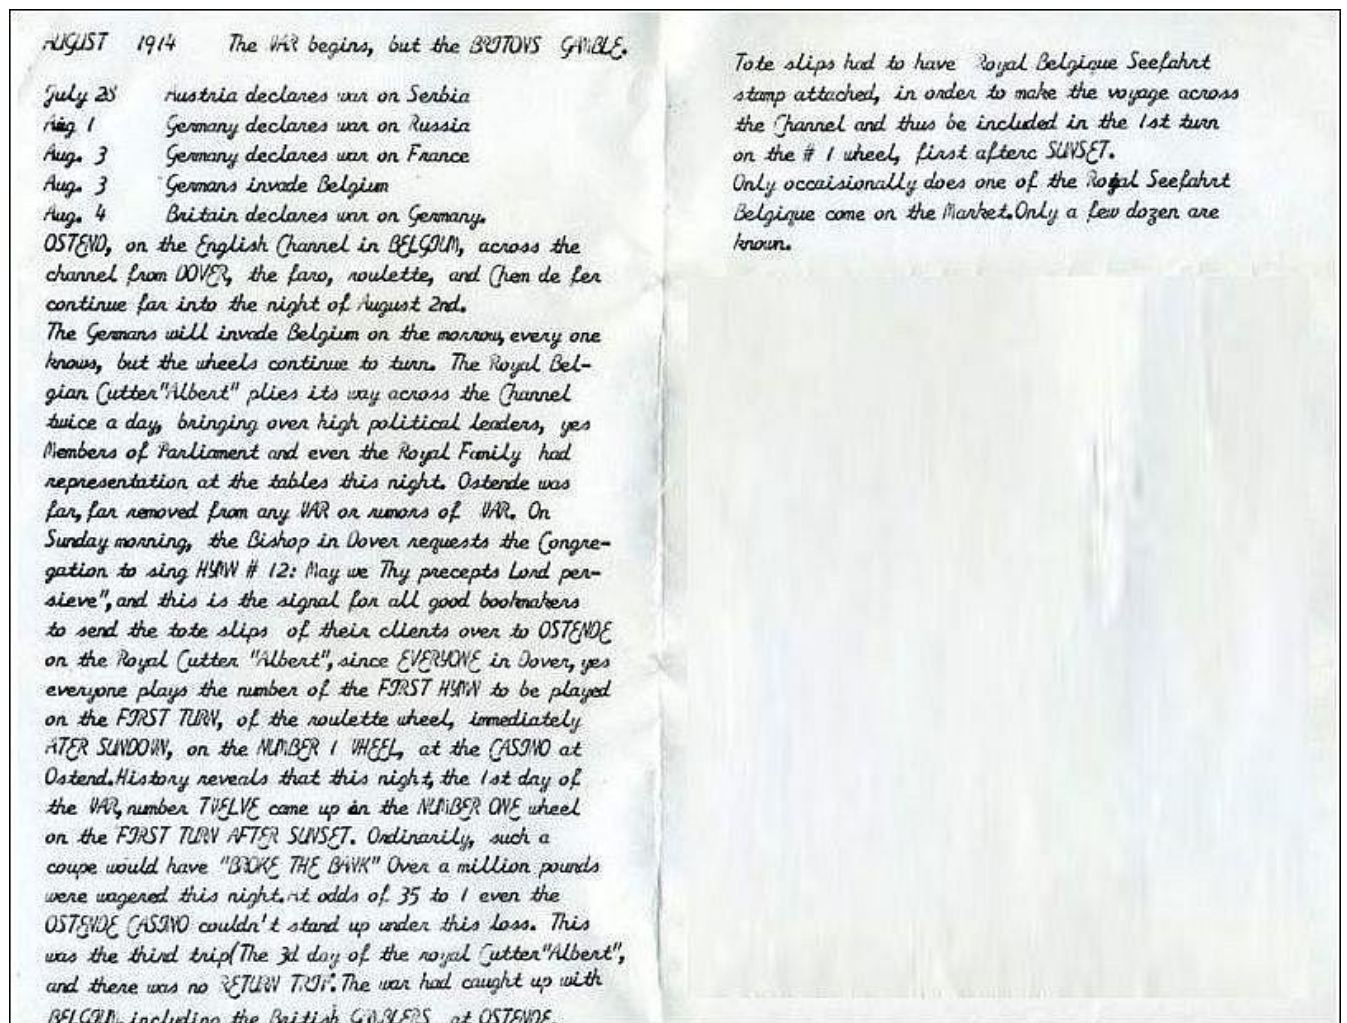 AUGUST 1914 The WAR begins, but the BRITONS GAMBLE.
July 28 Austria declares war on Serbia
Aug 1 Germany declares war on Russia
Aug. 3 Germany declares war on France
Aug. 3 Germans invade Belgium
Aug. 4 Britain declares war on Germany.
OSTEND, on the English Channel in BELGIUM, across the
channel from DOVER, the faro, roulette, and Chem de fer
continue far into the night of August 2nd.
The Germans will invade Belgium on the morrow, every one
knows, but the wheels continue to turn. The Royal Bel-
gian Cutter"Albert" plies its way across the Channel
twice a day, bringing over high political leaders, yes
Members of Parliament and even the Royal Family had
representation at the tables this night. Ostende was
far, far removed from any WAR or rumors of WAR. On
Sunday morning, the Bishop in Dover requests the Congre-
gation to sing HYMN # 12: May we Thy precepts Lord per-
sieve", and this is the signal for all good bookmakers
to send the tote slips of their clients over to OSTENDE
on the Royal Cutter "Albert", since EVERYONE in Dover, yes
everyone plays the number of the FIRST HYMN to be played
on the FIRST TURN, of the roulette wheel, immediately
ATER SUNDOWN, on the NUMBER 1 WHEEL, at the CASINO at
Ostend. History reveals that this night, the 1st day of
the WAR, number TWELVE came up on the NUMBER ONE wheel
on the FIRST TURN AFTER SUNSET. Ordinarily, such a
coupe would have "BROKE THE BANK" Over a million pounds
were wagered this night. At odds of 35 to 1 even the
OSTENDE CASINO couldn't stand up under this loss. This
was the third trip(The 3d day of the royal Cutter"Albert",
and there was no RETURN TRIP. The war had caught up with
BELGIUM, including the British GAMBLERS at OSTENDE.
Tote slips had to have Royal Belgique Seefahrt
stamp attached, in order to make the voyage across
the Channel and thus be included in the 1st turn
on the # 1 wheel, first afterc SUNSET.
Only occaisionally does one of the Royal Seefahrt
Belgique come on the Market. Only a few dozen are
known.